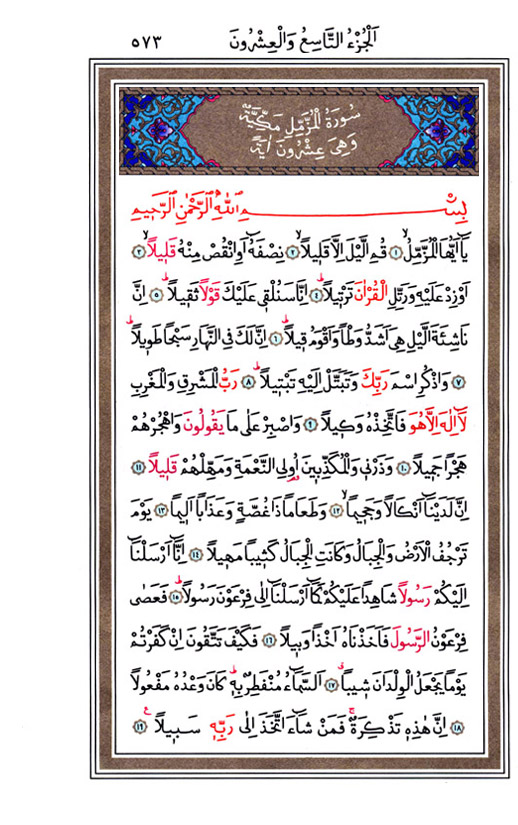 اَلْجُزْءُ التَّاسِعُ وَالْعِشْرُونَ ٥٧٣
سُورَةُ الْمُزَّمِّلِ مَكِّيَّةٌ
وَهِىَ عِشْرُونَ اٰيَةً
بِسْمِ اللّٰهِ الرَّحْمٰنِ الرَّحٖيمِ
يَٓا اَيُّهَا الْمُزَّمِّلُۙ ﴿١﴾ قُمِ الَّيْلَ اِلَّا قَلٖيلاًۙ ﴿٢﴾ نِصْفَهُٓ اَوِ انْقُصْ مِنْهُ قَلٖيلاًۙ ﴿٣﴾
اَوْ زِدْ عَلَيْهِ وَرَتِّلِ الْقُرْاٰنَ تَرْتٖيلاًؕ ﴿٤﴾ اِنَّا سَنُلْقٖى عَلَيْكَ قَوْلاً ثَقٖيلاً ﴿٥﴾ اِنَّ
نَاشِئَةَ الَّيْلِ هِىَ اَشَدُّ وَطْـٔاً وَاَقْوَمُ قٖيلاًؕ ﴿٦﴾ اِنَّ لَكَ فِى النَّهَارِ سَبْحاً طَوٖيلاًؕ
﴿٧﴾ وَاذْكُرِ اسْمَ رَبِّكَ وَتَبَتَّلْ اِلَيْهِ تَبْتٖيلاًؕ ﴿٨﴾ رَبُّ الْمَشْرِقِ وَالْمَغْرِبِ
لَٓا اِلٰهَ اِلَّا هُوَ فَاتَّخِذْهُ وَكٖيلاً ﴿٩﴾ وَاصْبِرْ عَلٰى مَا يَقُولُونَ وَاهْجُرْهُمْ
هَجْراً جَمٖيلاً ﴿١٠﴾ وَذَرْنٖى وَالْمُكَذِّبٖينَ اُو۬لِى النَّعْمَةِ وَمَهِّلْهُمْ قَلٖيلاً ﴿١١﴾
اِنَّ لَدَيْنَٓا اَنْكَالاً وَجَحٖيماًۙ ﴿١٢﴾ وَطَعَاماً ذَا غُصَّةٍ وَعَذَاباً اَلٖيماً ﴿١٣﴾ يَوْمَ
تَرْجُفُ الْاَرْضُ وَالْجِبَالُ وَكَانَتِ الْجِبَالُ كَثٖيباً مَهٖيلاً ﴿١٤﴾ اِنَّٓا اَرْسَلْنَٓا
اِلَيْكُمْ رَسُولاً شَاهِداً عَلَيْكُمْ كَمَٓا اَرْسَلْنَٓا اِلٰى فِرْعَوْنَ رَسُولاًؕ ﴿١٥﴾ فَعَصٰى
فِرْعَوْنُ الرَّسُولَ فَاَخَذْنَاهُ اَخْذاً وَبٖيلاً ﴿١٦﴾ فَكَيْفَ تَتَّقُونَ اِنْ كَفَرْتُمْ
يَوْماً يَجْعَلُ الْوِلْدَانَ شٖيباًۗ ﴿١٧﴾ اَلسَّمَٓاءُ مُنْفَطِرٌ بِهٖؕ كَانَ وَعْدُهُ مَفْعُولاً
﴿١٨﴾ اِنَّ هٰذِهٖ تَذْكِرَةٌۚ فَمَنْ شَٓاءَ اتَّخَذَ اِلٰى رَبِّهٖ سَبٖيلاًࣖ ﴿١٩﴾